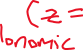 (z=
ionomic